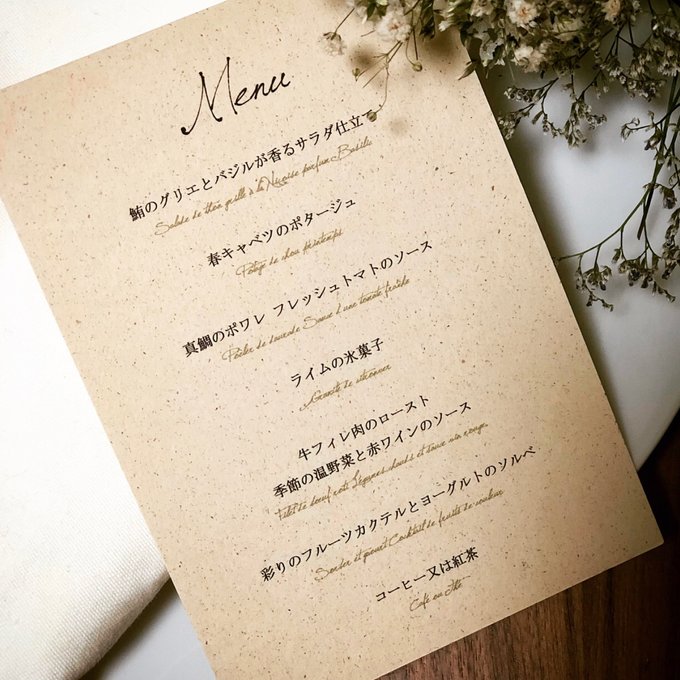 Menu
鮪のグリエとバジルが香るサラダ仕立て
Salade de thon grillé à la Niçoise parfum Basilic
春キャベツのポタージュ
Potage de chou Printemps
真鯛のポワレ フレッシュトマトのソース
Poêler de daurade Sauce d'une tomate fraîche
ライムの氷菓子
Granité de citronner
牛フィレ肉のロースト
季節の温野菜と赤ワインのソース
Filet de bœuf rôti Légumes chauds et sauce vin rouge
彩りのフルーツカクテルとヨーグルトのソルベ
Sorbet et yaourt Cocktail de fruits de couleur
コーヒー又は紅茶
Café ou thé